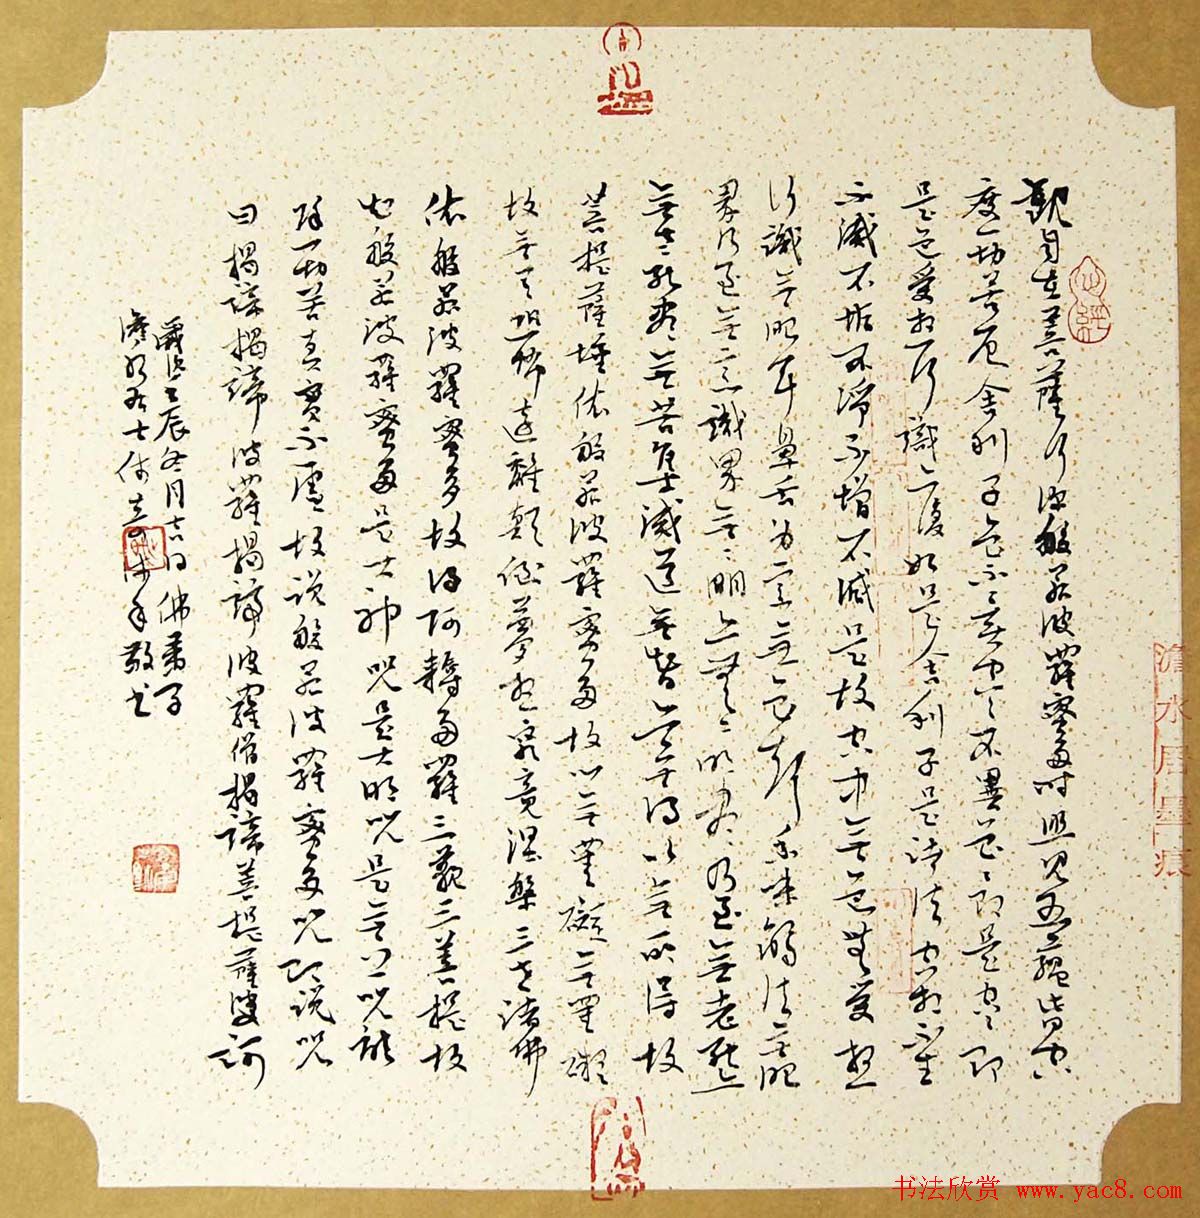 觀自在菩薩行深般若波羅蜜多時照見五蘊皆空
度一切苦厄舍利子色不異空空不異色色即是空空即
是色受想行識亦復如是舍利子是諸法空相不生
不滅不垢不淨不增不減是故空中無色無受想
行識無眼耳鼻舌身意無色聲香味觸法無眼
界乃至無意識界無無明亦無無明盡乃至無老死亦
無老死盡無苦集滅道無智亦無得以無所得故
菩提薩埵依般若波羅蜜多故心無罣礙無罣礙
故無有恐怖遠離顛倒夢想究竟涅槃三世諸佛
依般若波羅蜜多故得阿耨多羅三藐三菩提故
知般若波羅蜜多是大神咒是大明咒是無上咒能
除一切苦真實不虛故說般若波羅蜜多咒即說咒
曰揭諦揭諦波羅揭諦波羅僧揭諦菩提薩婆訶
壬辰冬月吉日佛弟子
居士
敬書
心經
澹水居墨痕
书法欣赏 www.yac8.com